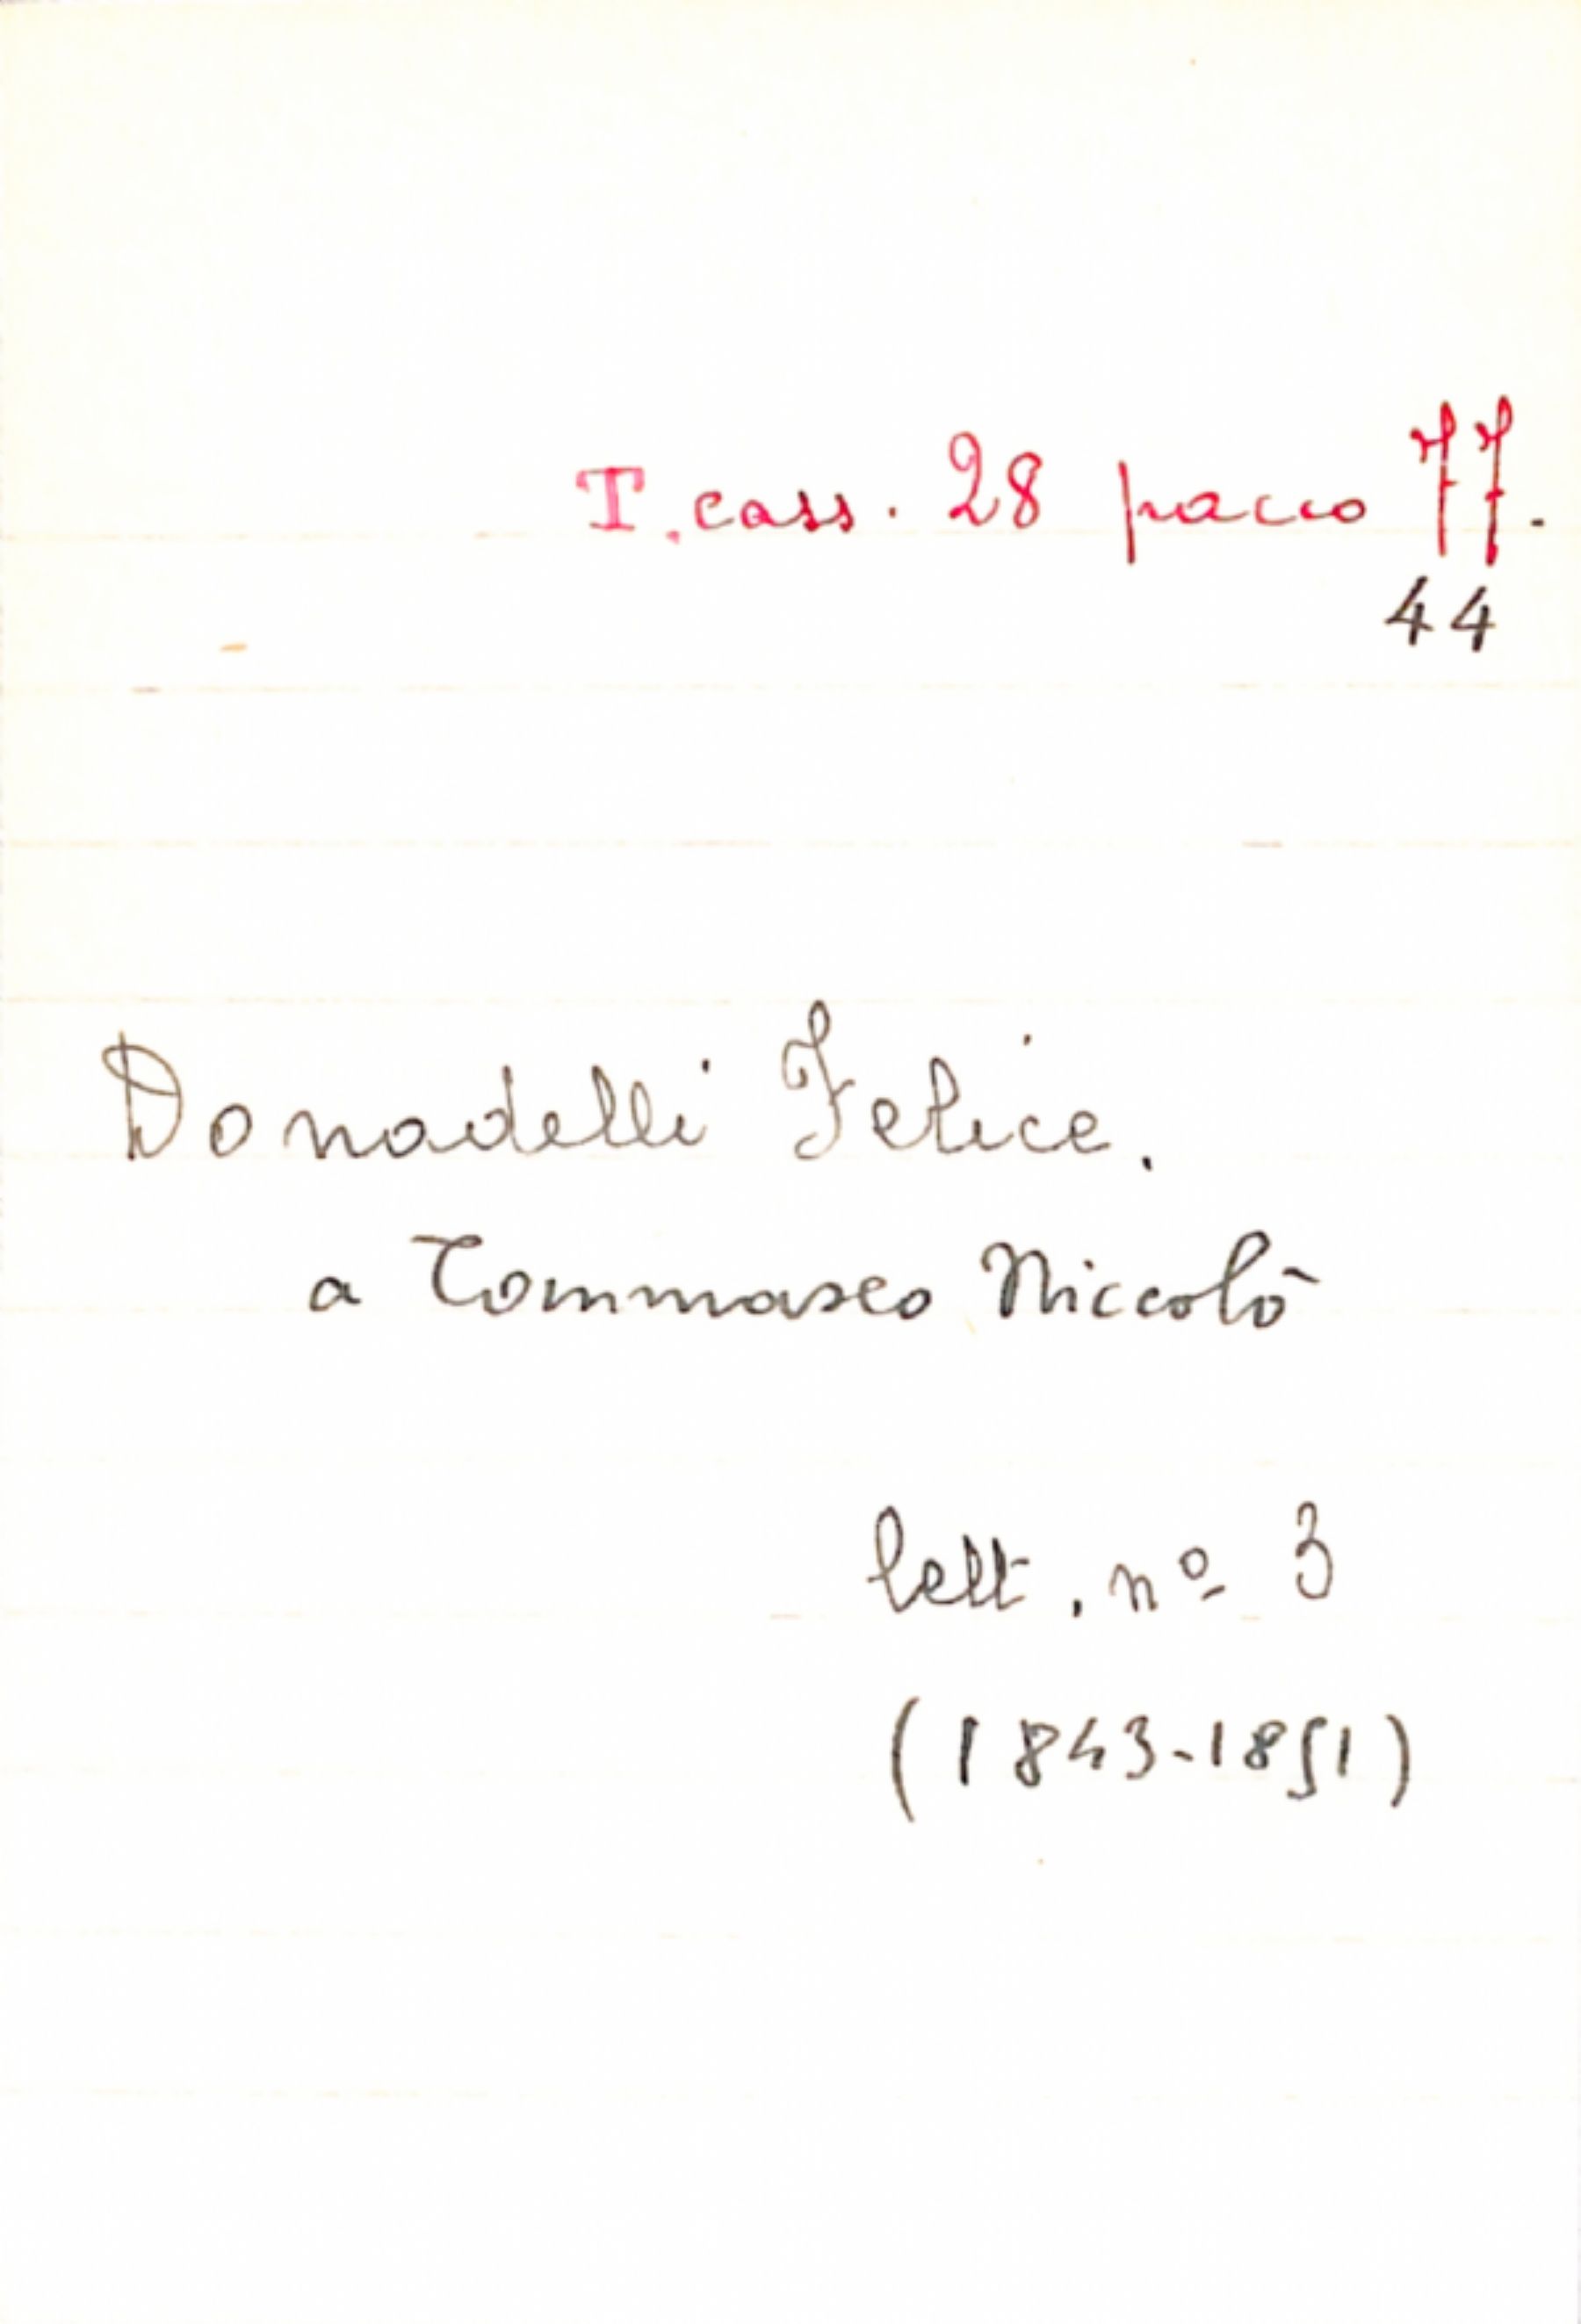 T. cass. 28 pacco 77.
44
Donadelli Felice.
a Tommaseo Niccolò
lett. nº 3
(1843-1851)